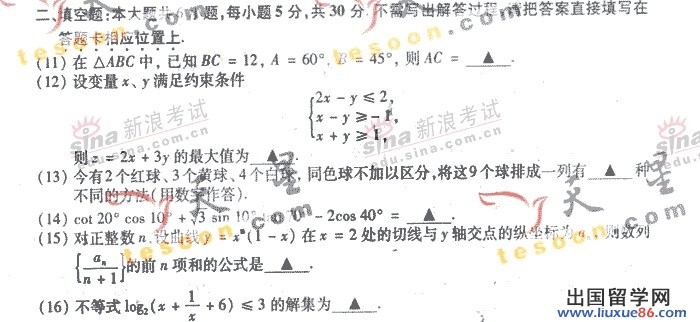 二、填空题:本大题共6小题,每小题5分,共30分.不需写出解答过程,请把答案直接填写在
答题卡相应位置上.
(11) 在 △ABC 中, 已知 BC = 12, A = 60°, B = 45°, 则 AC = ▲ .
(12) 设变量 x、y 满足约束条件
2x - y ≤ 2,
x - y ≥ -1,
x + y ≥ 1,
则 z = 2x + 3y 的最大值为 ▲ .
(13) 今有2个红球、3个黄球、4个白球, 同色球不加以区分,将这9个球排成一列有 ▲ 种
不同的方法(用数字作答).
(14) cot 20° cos 10° + √3 sin 10° - 2cos 40° = ▲ .
(15) 对正整数 n,设曲线 y = xⁿ(1 - x) 在 x = 2 处的切线与 y 轴交点的纵坐标为 aₙ, 则数列
{aₙ/(n + 1)} 的前 n 项和的公式是 ▲ .
(16) 不等式 log₂(x + 1/x + 6) ≤ 3 的解集为 ▲ .
sina 新浪考试
edu.sina.com.cn
sina 新浪考试
edu.sina.com.cn
天星
tesoon.com
tesoon.com
天星
tesoon.com
tesoon.com
出国留学网
www.liuxue86.com